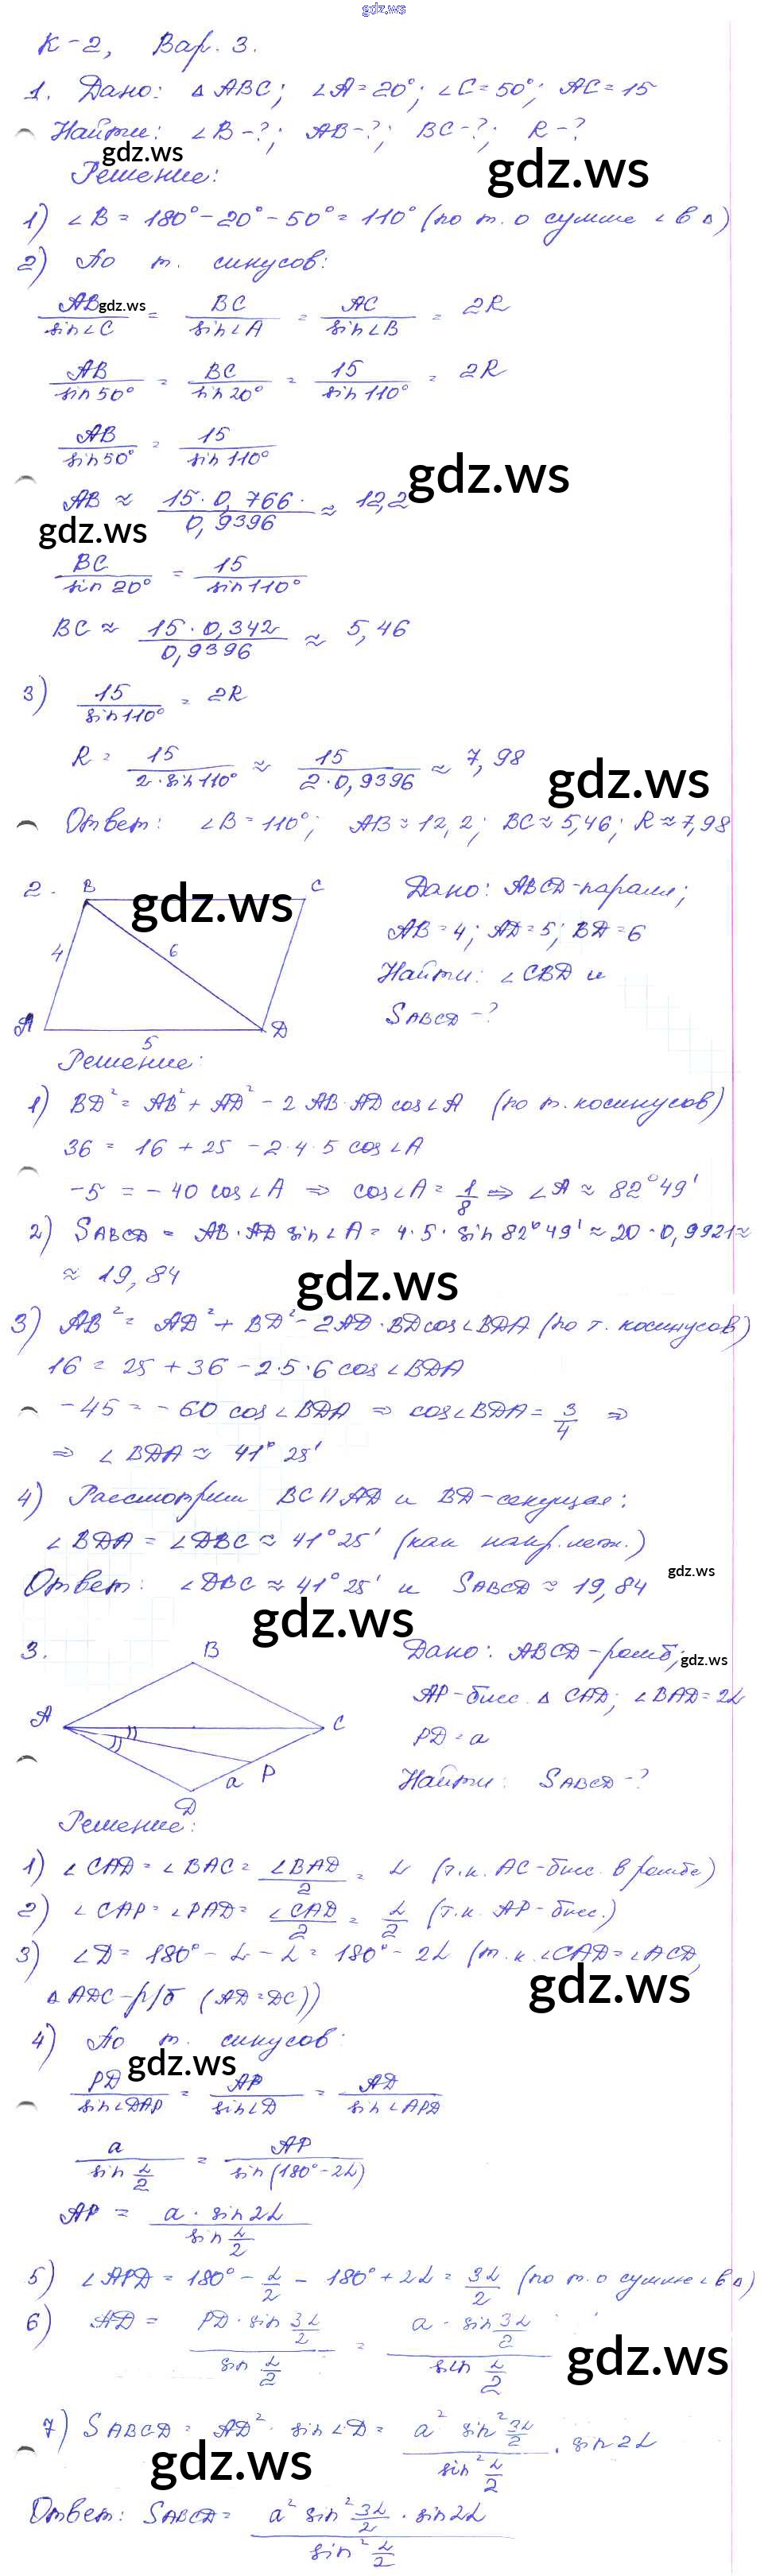 gdz.ws
К-2, Вар. 3.
1. Дано: △ABC; ∠A=20°; ∠C=50°; AC=15
Найти: ∠B-?; AB-?; BC-?; R-?
gdz.ws
gdz.ws
Решение:
1) ∠B = 180°-20°-50°=110° (по т. о сумме ∠ в △)
2) По т. синусов:
AB/sin∠C = BC/sin∠A = AC/sin∠B = 2R
gdz.ws
AB/sin50° = BC/sin20° = 15/sin110° = 2R
AB/sin50° = 15/sin110°
gdz.ws
AB ≈ 15·0,766·/0,9396 ≈ 12,2
gdz.ws
BC/sin20° = 15/sin110°
BC ≈ 15·0,342/0,9396 ≈ 5,46
3) 15/sin110° = 2R
R = 15/2·sin110° ≈ 15/2·0,9396 ≈ 7,98
gdz.ws
Ответ: ∠B=110°; AB≈12,2; BC≈5,46; R≈7,98
2. B C
gdz.ws
Дано: ABCD-паралл;
AB=4; AD=5; BD=6
4 6
Найти: ∠CBD и
SABCD-?
A 5 D
Решение:
1) BD²=AB²+AD²-2AB·AD cos∠A (по т. косинусов)
36 = 16+25-2·4·5 cos∠A
-5 = -40 cos∠A ⇒ cos∠A = 1/8 ⇒ ∠A ≈ 82°49'
2) SABCD = AB·AD sin∠A = 4·5·sin82°49' ≈ 20·0,9921≈
≈ 19,84
gdz.ws
3) AB² = AD²+BD²-2AD·BDcos∠BDA (по т. косинусов)
16 = 25+36-2·5·6 cos∠BDA
-45 = -60 cos∠BDA ⇒ cos∠BDA = 3/4 ⇒
⇒ ∠BDA ≈ 41°25'
4) Рассмотрим BC||AD и BD-секущая:
∠BDA = ∠DBC ≈ 41°25' (как накр. леж.)
gdz.ws
Ответ: ∠DBC ≈ 41°25' и SABCD ≈ 19,84
gdz.ws
3. B
Дано: ABCD-ромб;
gdz.ws
AP-бисс. △CAD; ∠BAD=2α
A C
PD=a
a P
Найти: SABCD-?
D
Решение:
1) ∠CAD=∠BAC=∠BAD/2 = α (т.к. AC-бисс. в ромбе)
2) ∠CAP=∠PAD=∠CAD/2 = α/2 (т.к. AP-бисс.)
3) ∠D=180°-α-α=180°-2α (т.к. ∠CAD=∠ACD,
gdz.ws
△ADC-р/б (AD=DC))
4) По т. синусов:
gdz.ws
PD/sin∠DAP = AP/sin∠D = AD/sin∠APD
a/sin α/2 = AP/sin(180°-2α)
AP = a·sin2α/sin α/2
5) ∠APD=180°-α/2-180°+2α=3α/2 (по т. о сумме ∠ в △)
6) AD = PD·sin 3α/2/sin α/2 = a·sin 3α/2/sin α/2
gdz.ws
7) SABCD = AD²·sin∠D = a² sin² 3α/2/sin² α/2 · sin2α
gdz.ws
Ответ: SABCD = a² sin² 3α/2 · sin2α/sin² α/2